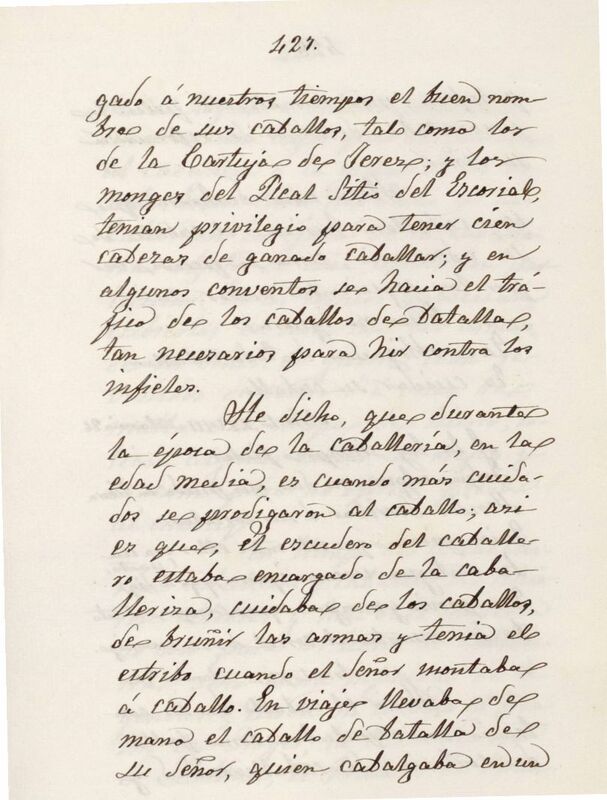 427.
gado á nuestros tiempos el buen nom-
bre de sus caballos, tale como los
de la Cartuja de Jerez; y los
monges del Real Sitio del Escorial,
tenian privilegio para tener cien
cabezas de ganado caballar; y en
algunos conventos se hacia el trá-
fico de los caballos de batalla,
tan necesarios para hir contra los
infieles.
He dicho, que durante
la época de la caballería, en la
edad media, es cuando más cuida-
dos se prodigaron al caballo; asi
es que, el escudero del caballe-
ro estaba encargado de la caba-
lleriza, cuidaba de los caballos,
de bruñir las armas y tenia el
estribo cuando el señor montaba
á caballo. En viaje llevaba de
mano el caballo de batalla de
su señor, quien cabalgaba en un